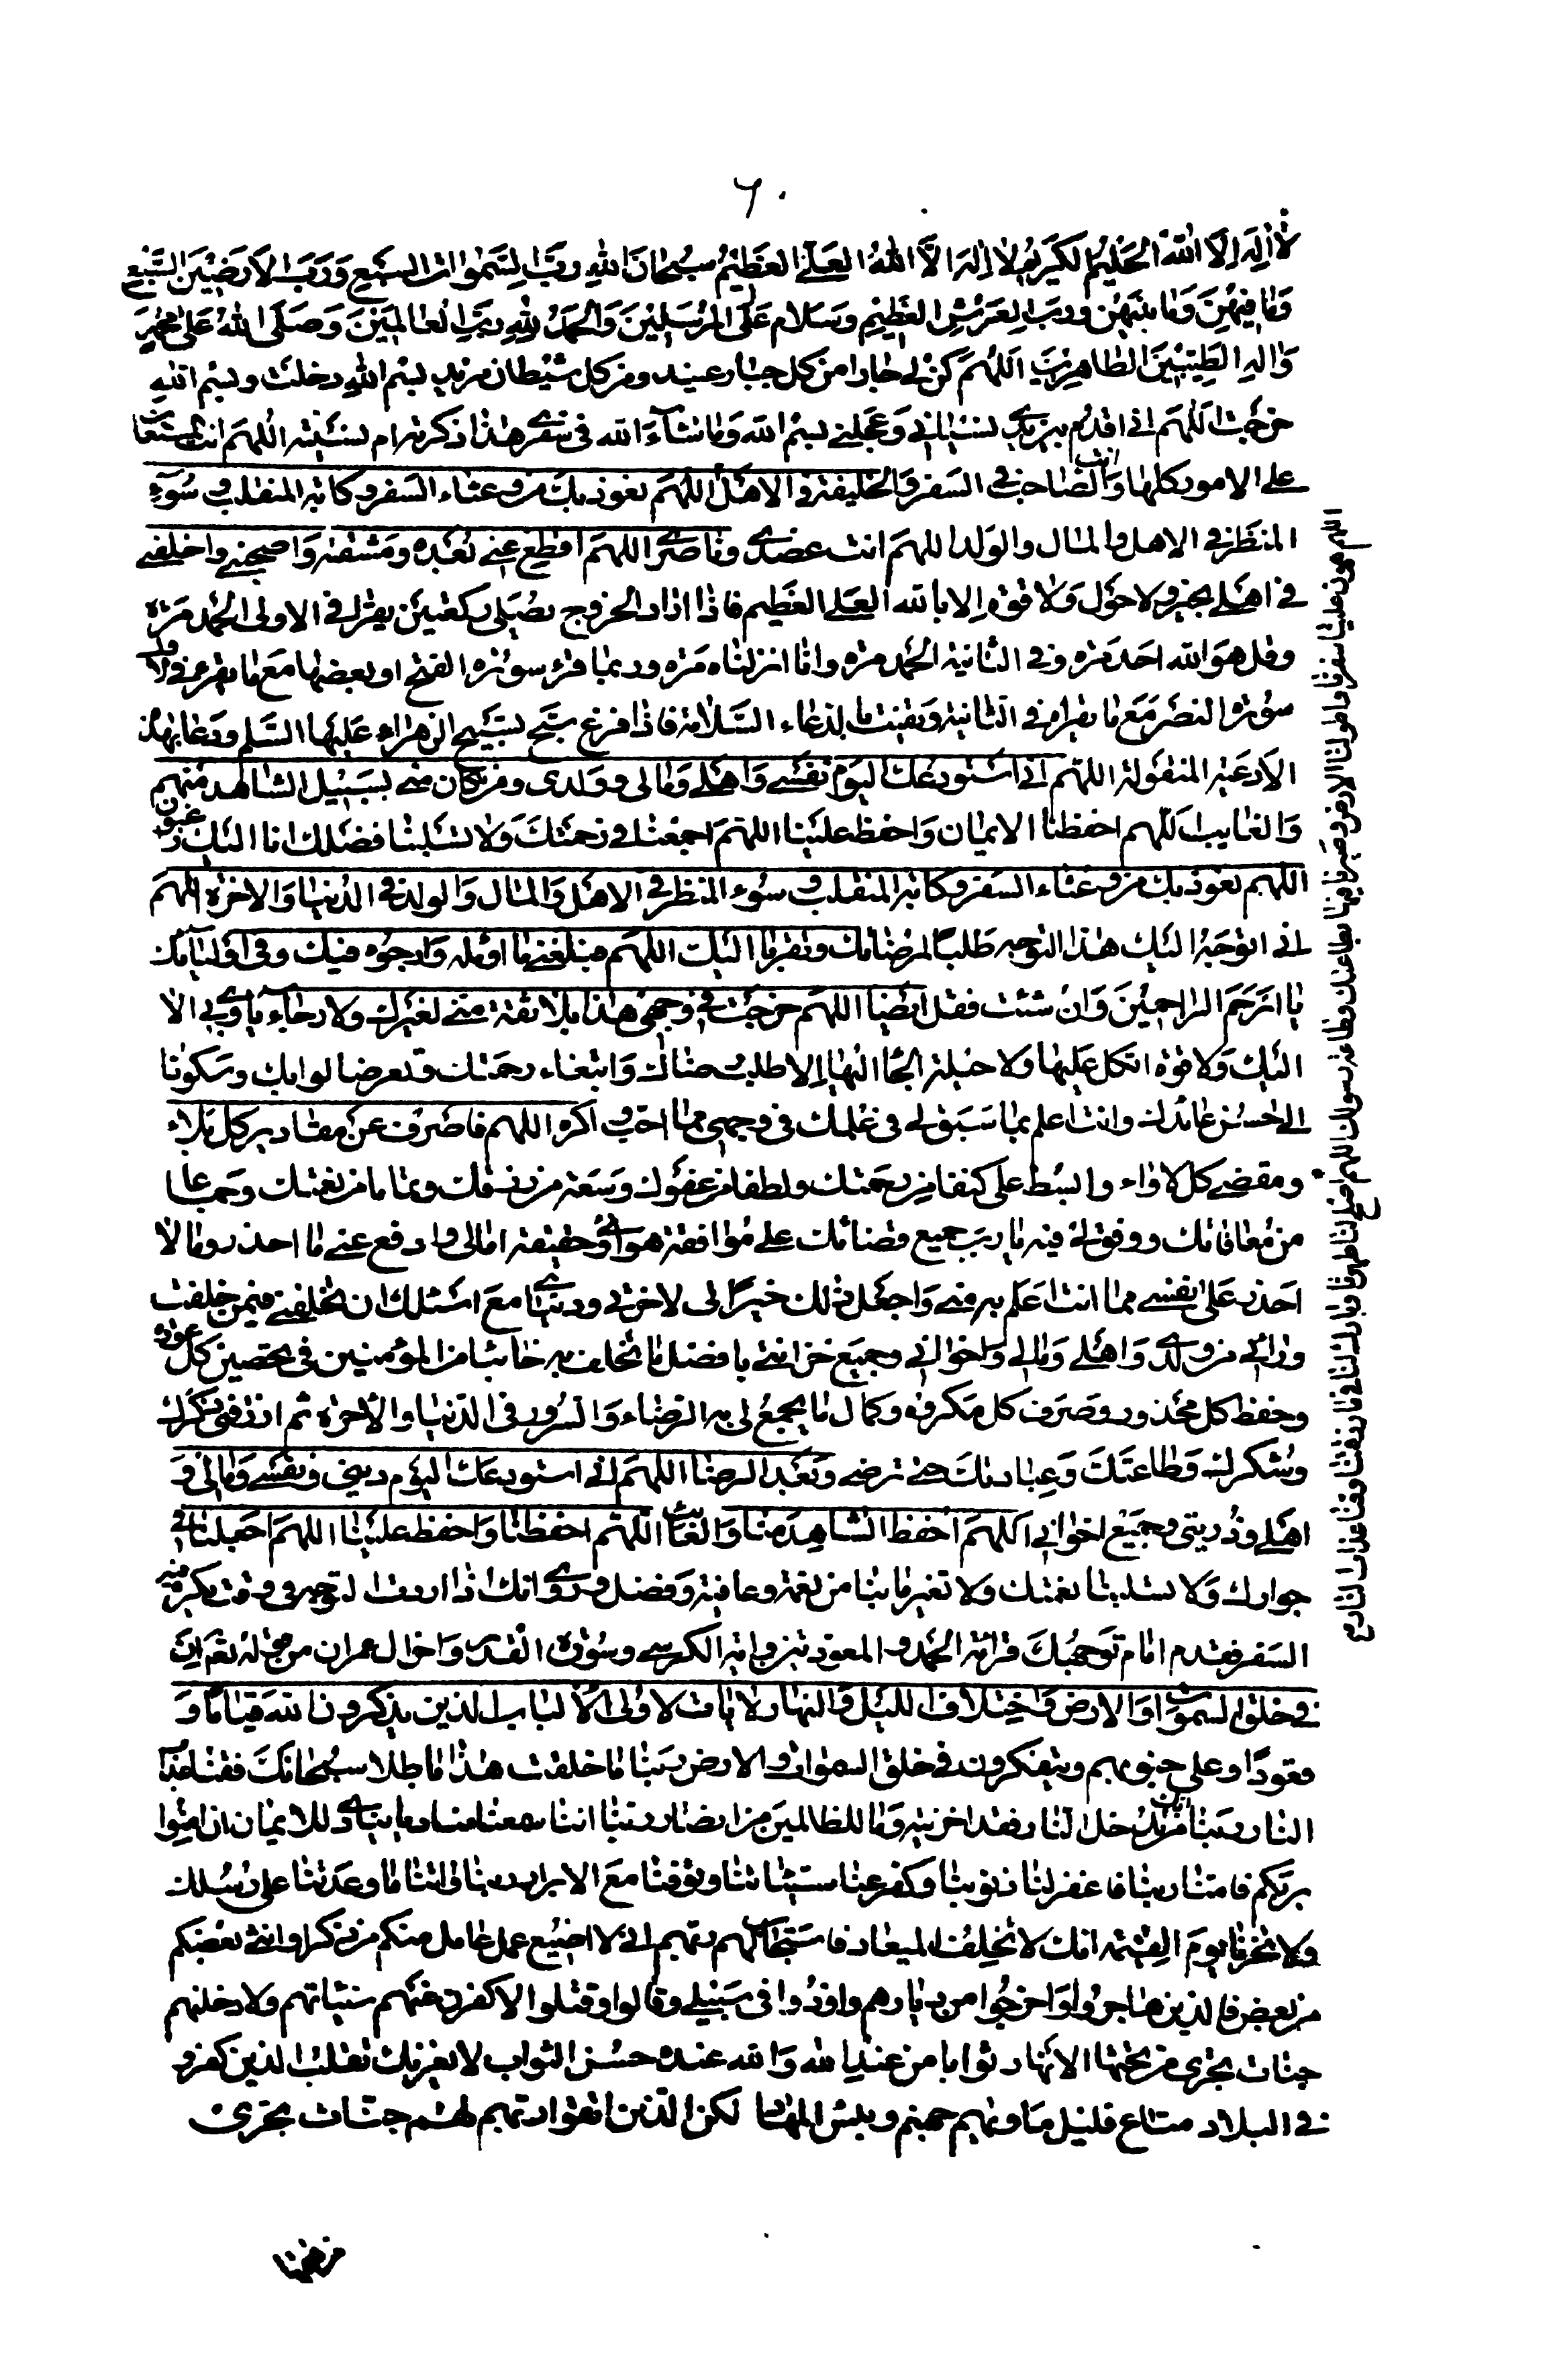 ٦٠
لا اله الا الله الحليم الكريم لا اله الا الله العلي العظيم سبحان الله رب السموات السبع ورب الارضين السبع
وما فيهن وما بينهن ورب العرش العظيم وسلام على المرسلين والحمد لله رب العالمين وصلى الله على محمد
واله الطيبين الطاهرين اللهم كن لي جارا من كل جبار عنيد ومن كل شيطان مريد بسم الله دخلت وبسم الله
خرجت اللهم اني اقدم بين يدي نسياني وعجلتي بسم الله وما شاء الله في سفري هذا ذكرته ام نسيته اللهم انت المستعان
على الامور كلها وانت الصاحب في السفر والخليفة في الاهل اللهم نعوذ بك من وعثاء السفر وكابة المنقلب وسوء
المنظر في الاهل والمال والولد اللهم انت عضدي وناصري اللهم اقطع عني بعده ومشقته واصحبني واخلفني
في اهلي بخير ولا حول ولا قوة الا بالله العلي العظيم فاذا اراد الخروج يصلي ركعتين يقرا في الاولى الحمد مرة
وقل هو الله احد مرة وفي الثانية الحمد مرة وانا انزلناه مرة وربما قرء سورة الفتح او بعضها مع ما يقرء في الاولى
سورة النصر مع ما يقراه في الثانية ويقنت بدعاء السلامة فاذا فرغ سبح تسبيح الزهراء عليها السلم ودعا بهذه
الادعية المنقولة اللهم اني استودعك اليوم نفسي واهلي ومالي وولدي ومن كان مني بسبيل الشاهد منهم
والغايب اللهم احفظنا الايمان واحفظ علينا اللهم اجمعنا في رحمتك ولا تسلبنا فضلك انا اليك راغبون
اللهم نعوذ بك من وعثاء السفر وكابة المنقلب وسوء المنظر في الاهل والمال والولد في الدنيا والاخرة اللهم
اني اتوجه اليك هذا التوجه طلبا لمرضاتك وتقربا اليك اللهم فبلغني ما اؤمله وارجوه فيك وفي اوليائك
يا ارحم الراحمين وان شئت فقل ايضا اللهم خرجت في وجهي هذا بلا ثقة مني لغيرك ولا رجاء ياوي بي الا
اليك ولا قوة اتكل عليها ولا حيلة الجا اليها الا طلب فضلك وابتغاء رحمتك وتعرضا لثوابك وسكونا
الى حسن عائدتك وانت اعلم بما سبق لي في علمك في وجهي مما احب واكره اللهم فاصرف عني مقادير كل بلاء
ومقضي كل لاواء وابسط علي كنفا من رحمتك ولطفا من عفوك وسعة من رزقك وتماما من نعمتك وجماعا
من معافاتك ووفق لي فيه يا رب جميع قضائك على موافقة هواي وحقيقة املي وادفع عني ما احذر وما لا
احذر على نفسي مما انت اعلم به مني واجعل ذلك خيرا لي لاخرتي ودنياي مع اسئلك ان تخلفني فيمن خلفت
ورائي من ولدي واهلي ومالي واخواني وجميع خزانتي بافضل ما تخلف به غائبا من المؤمنين في تحصين كل عورة
وحفظ كل محذور وصرف كل مكروه وكمال ما يجمع لي به الرضاء والسرور في الدنيا والاخرة ثم ارزقني ذكرك
وشكرك وطاعتك وعبادتك حتى ترضى وبعد الرضا اللهم اني استودعك اليوم ديني ونفسي ومالي و
اهلي وذريتي وجميع اخواني اللهم احفظ الشاهد منا والغائب اللهم احفظنا واحفظ علينا اللهم اجعلنا في
جوارك ولا تسلبنا نعمتك ولا تغير ما بنا من نعمة وعافية وفضل وانك اذا اردت التوجه في وقت يكره فيه
السفر فقدم امام توجهك قراءة الحمد والمعوذتين واية الكرسي وسورة القدر واخر ال عمران من قوله تع ان
في خلق السموات والارض واختلاف الليل والنهار لايات لاولي الالباب الذين يذكرون الله قياما و
قعودا وعلى جنوبهم ويتفكرون في خلق السموات والارض ربنا ما خلقت هذا باطلا سبحانك فقنا عذاب
النار ربنا انك من تدخل النار فقد اخزيته وما للظالمين من انصار ربنا اننا سمعنا مناديا ينادي للايمان ان امنوا
بربكم فامنا ربنا فاغفر لنا ذنوبنا وكفر عنا سيئاتنا وتوفنا مع الابرار ربنا واتنا ما وعدتنا على رسلك
ولا تخزنا يوم القيمة انك لا تخلف الميعاد فاستجاب لهم ربهم اني لا اضيع عمل عامل منكم من ذكر او انثى بعضكم
من بعض فالذين هاجروا واخرجوا من ديارهم واوذوا في سبيلي وقاتلوا وقتلوا لاكفرن عنهم سيئاتهم ولادخلنهم
جنات تجري من تحتها الانهار ثوابا من عند الله والله عنده حسن الثواب لا يغرنك تقلب الذين كفروا
في البلاد متاع قليل ماويهم جهنم وبئس المهاد لكن الذين اتقوا ربهم لهم جنات تجري
من تحتها
اللهم هون علينا سفرنا واطو لنا الارض وسيرنا فيها بطاعتك وطاعة رسولك اللهم اصلح لنا ظهرنا وبارك لنا فيما رزقتنا وقنا عذاب النار